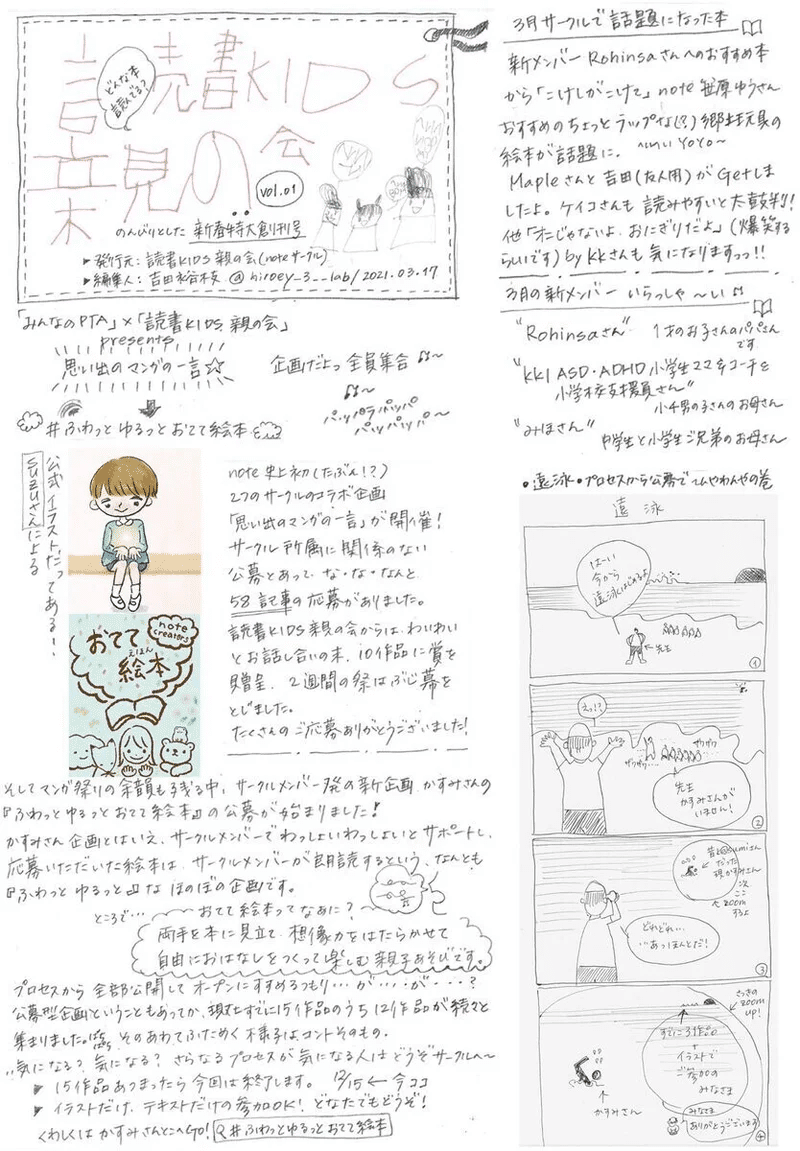 読書KIDS
どんな本
読んでる?
親の会
vol.01
のんびりとした 新春特大創刊号
▶発行元:読書KIDS親の会(noteサークル)
▶編集人:吉田裕枝@hiroey_3__lab/2021.03.17
「みんなのPTA」×「読書KIDS親の会」
presents
思い出のマンガの一言☆
企画だよっ 全員集合 ♫〜
♫〜
パッパラパッパ
パッパパッパ〜
#ふわっとゆるっとおてて絵本
公式イラストだってある!!
suzuさんによる
note
creators
おてて
えほん
絵本
note史上初(たぶん!?)
2つのサークルのコラボ企画
「思い出のマンガの一言」が開催!
サークル所属に関係のない
公募とあって、な・な・なんと
58記事の応募がありました。
読書KIDS親の会からは、わいわい
とお話し合いの末、10作品に賞を
贈呈、2週間の祭はぶじ幕を
とじました。
たくさんのご応募ありがとうございました!
そしてマンガ祭りの余韻も残る中、サークルメンバー発の新企画、かすみさんの
『ふわっとゆるっとおてて絵本』の公募が始まりました!
かすみさん企画とはいえ、サークルメンバーでわっしょいわっしょいとサポートし、
応募いただいた絵本は、サークルメンバーが朗読するという、なんとも
『ふわっと ゆるっと』な ほのぼの企画です。
ところで…
おてて絵本ってなあに?
両手を本に見立て、想像力をはたらかせて
自由におはなしをつくって楽しむ親子あそびです。
プロセスから全部公開してオープンにすすめるつもり…が…・が・・・・?
公募型企画ということもあってか、現在すでに15作品のうち12作品が続々と
集まりました。そのあわてふためく様子は、コントそのもの。
気になる?気になる?さらなるプロセスが気になる人はどうぞサークルへ〜
▶15作品あつまったら今回は終了します。12/15←今ココ
▶イラストだけ、テキストだけの参加OK!どなたでもどうぞ!
くわしくはかすみさんとこへGO! #ふわっとゆるっとおてて絵本
3月サークルで話題になった本
新メンバーRohinsaさんへのおすすめ本
から「こけしがこけて」note笹原ゆうさん
おすすめのちょっとラップな(?)郷土玩具の
絵本が話題に。〜いい YoYo〜
Mapleさんと吉田(友人用)がGetしま
したよ。ケイコさんも読みやすいと太鼓判!
他「オニじゃないよ、おにぎりだよ」(爆笑する
らしいです)by kkさんも気になりますっっ!!
3月の新メンバー いらっしゃ〜い♫
"Rohinsaさん" 1才のお子さんのパパさん
です
"kk|ASD・ADHD小学生ママ&コーチと
小学校支援員さん"
小4男の子さんのお母さん
"みほさん"
中学生と小学生ご兄弟のお母さん
・遠泳・プロセスから公募でてんやわんやの巻
遠泳
はーい
今から
遠泳はじめるよ
←先生
①
えっ!?
ザワザワ…
ザワザワ
先生
かすみさんが
いません!
②
昔kasumiさん
だった
現かすみさん
次
ここ
zoom
するよ
どれどれ…
…あっほんとだ!
③
さっきの
zoom
up!
すでに3作品
+
イラストで
ご参加の
みなさま
↑
かすみさん
みなさま
ありがとうございます
④